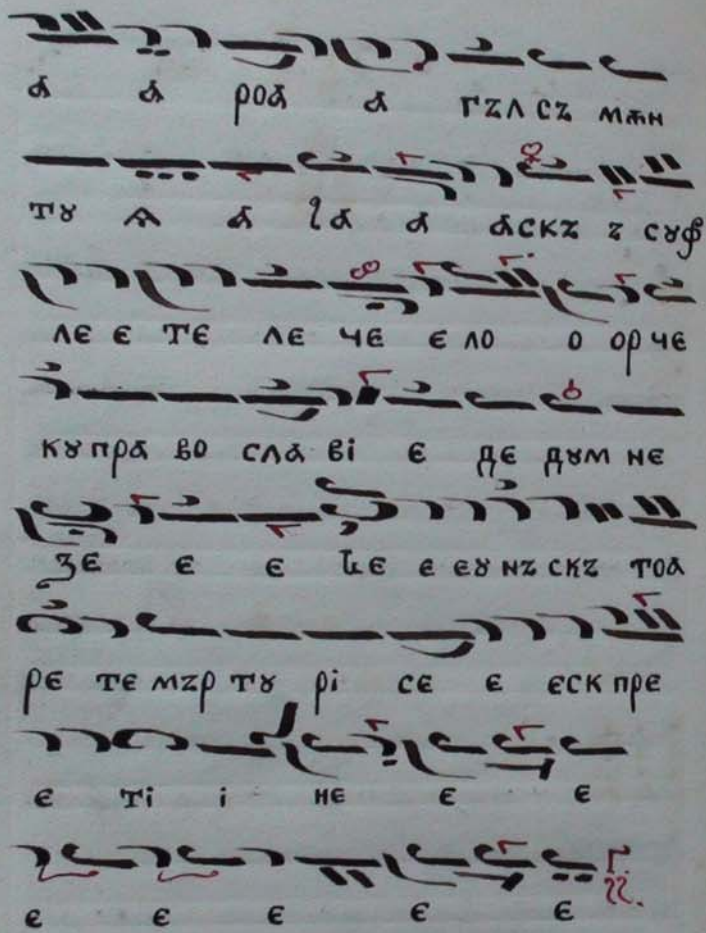 а а роа а гꙁл сꙁ мѫн
тꙋ ѧ а ца а аскꙁ ꙁ сꙋф
ле е те ле че е ло о ор че
кꙋ пра во сла ві е де дꙋм не
зе е е ще е еꙋ нꙁ скꙁ тоа
ре те мꙁр тꙋ рі се е еск пре
е ті і не е е
е е е е е